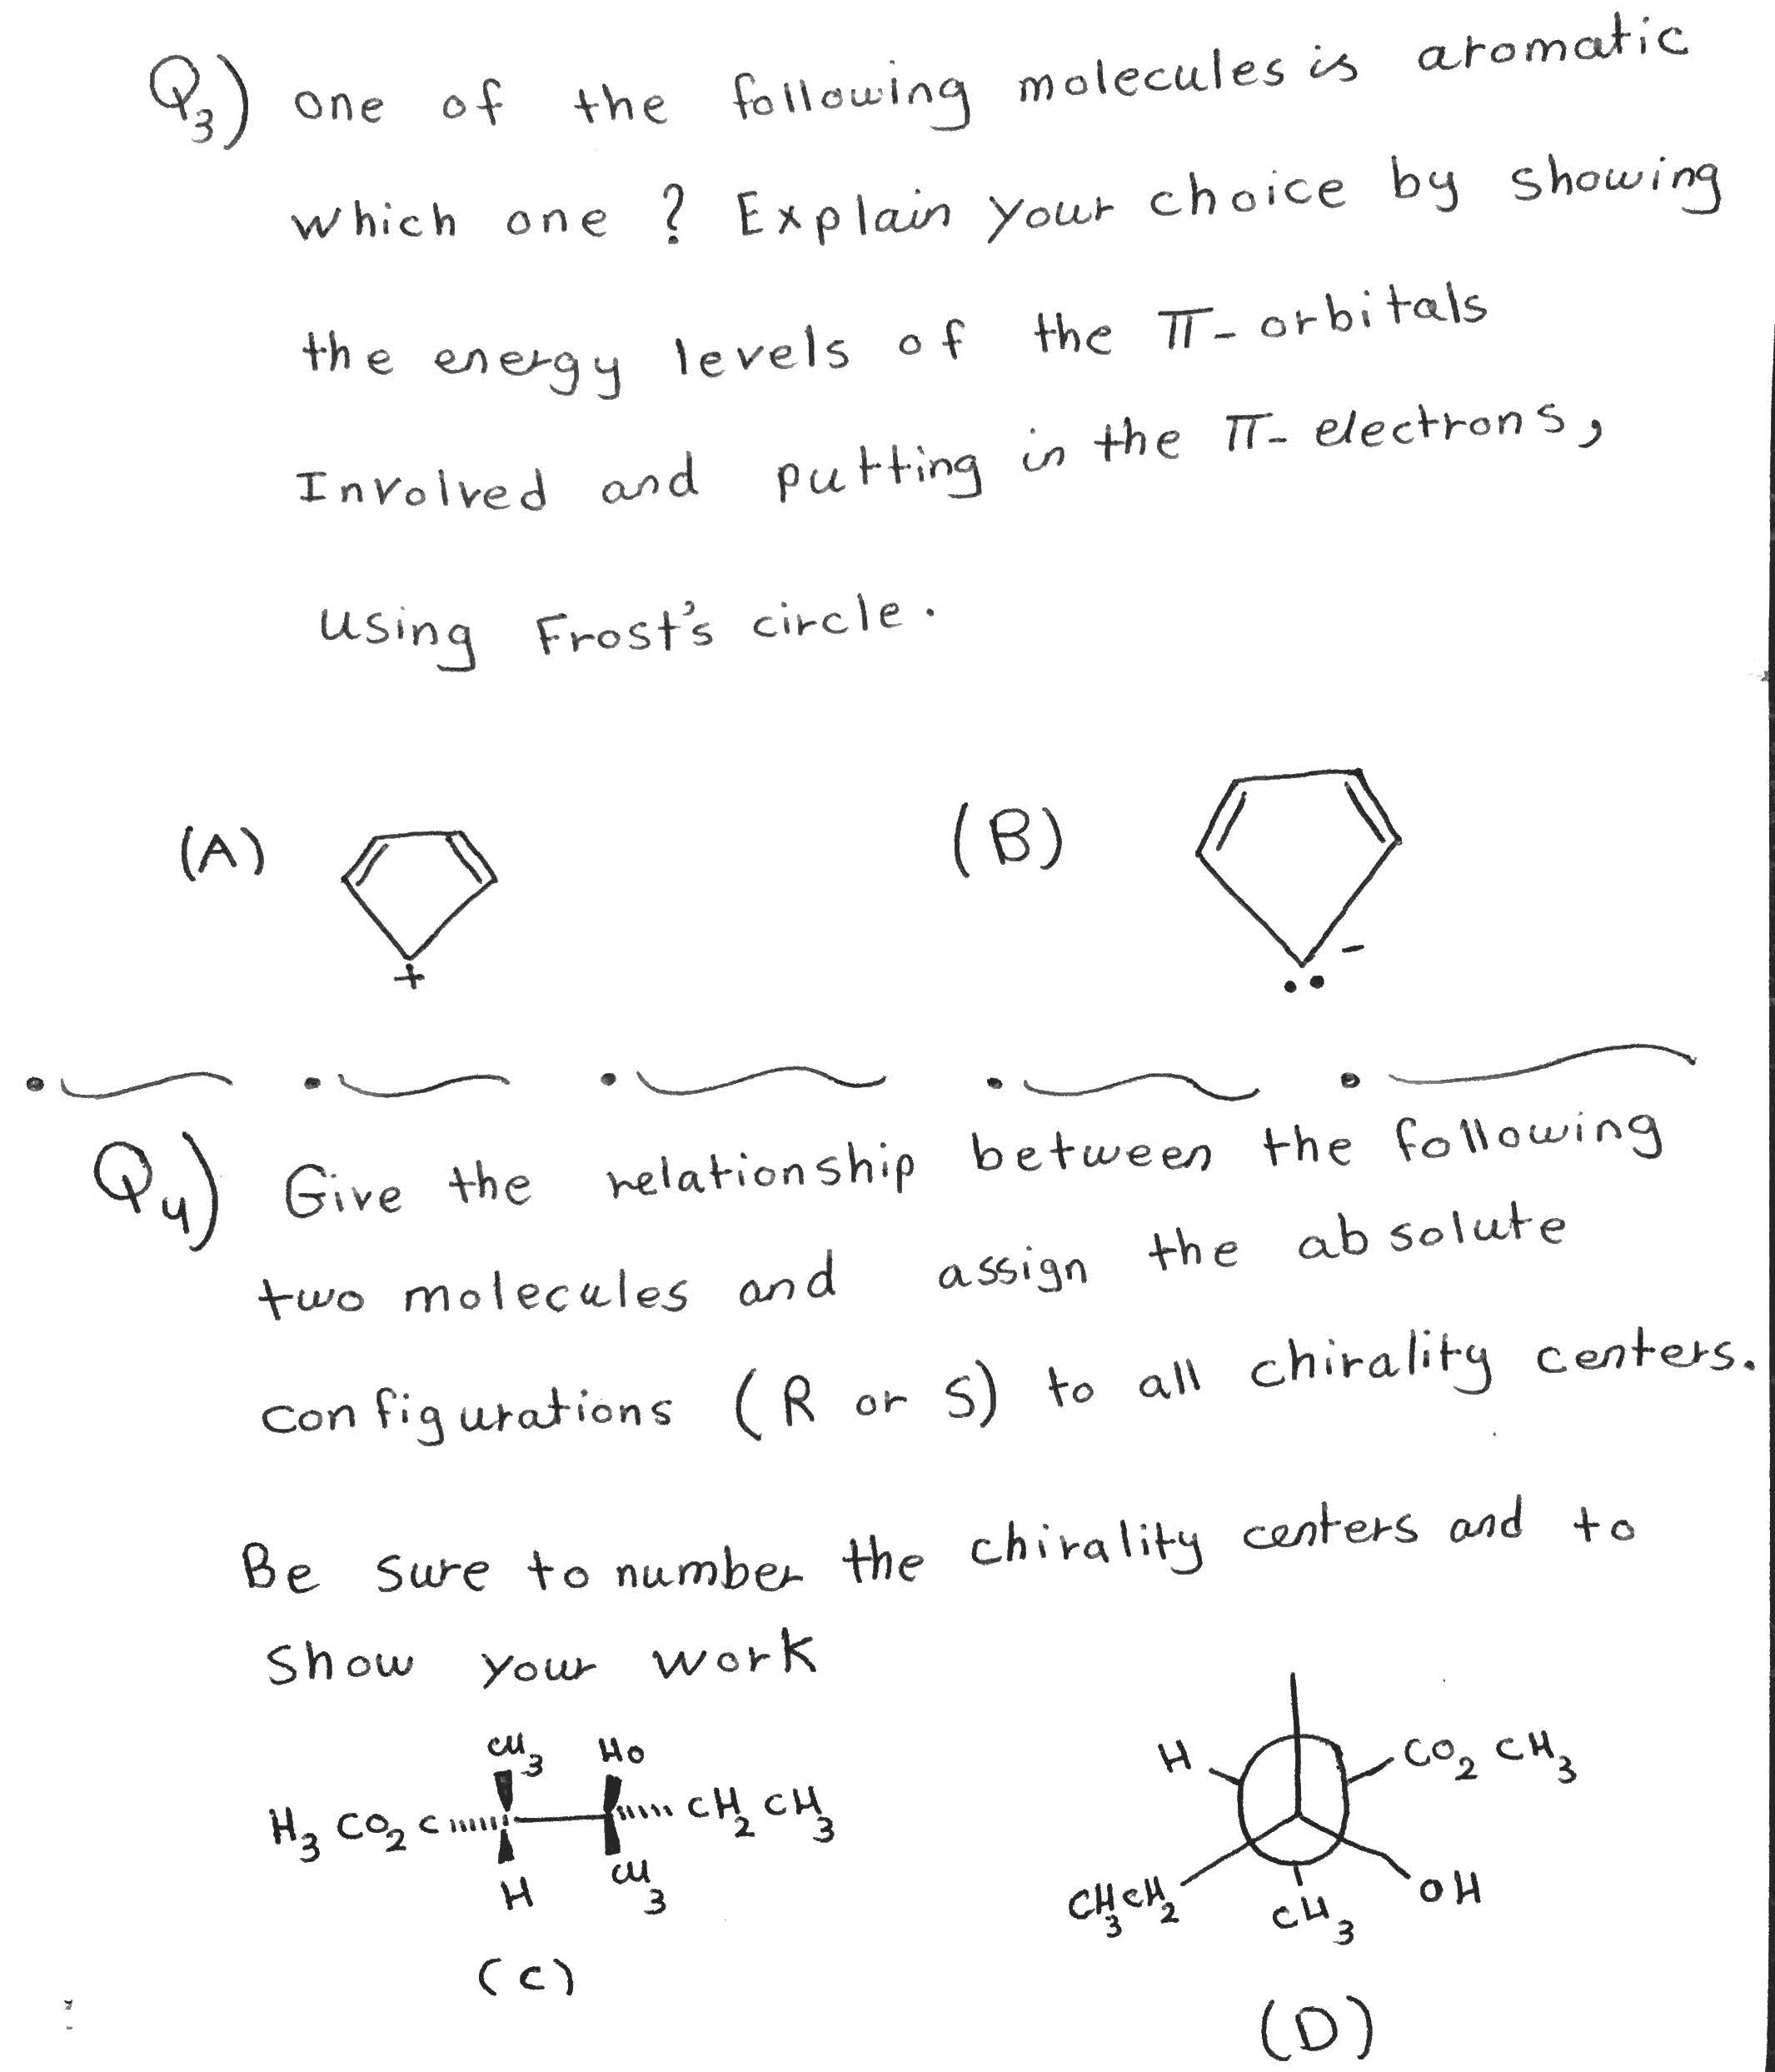 Q3) one of the following molecules is aromatic
which one ? Explain your choice by showing
the energy levels of the π-orbitals
Involved and putting in the π-electrons,
using Frost's circle.
(A)
(B)
+
-
Q4) Give the relationship between the following
two molecules and assign the absolute
configurations (R or S) to all chirality centers.
Be sure to number the chirality centers and to
show your work
CH3 HO
H3CO2C CH2CH3
H CH3
(C)
H CO2CH3
CH3CH2 CH3 OH
(D)